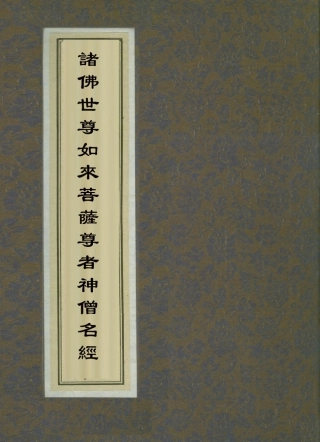 諸佛世尊如來菩薩尊者神僧名經